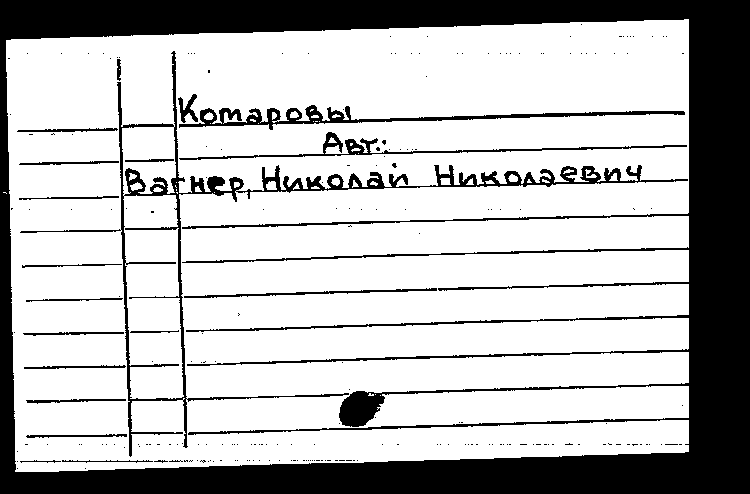 Комаровы
Авт.:
Вагнер, Николай Николаевич